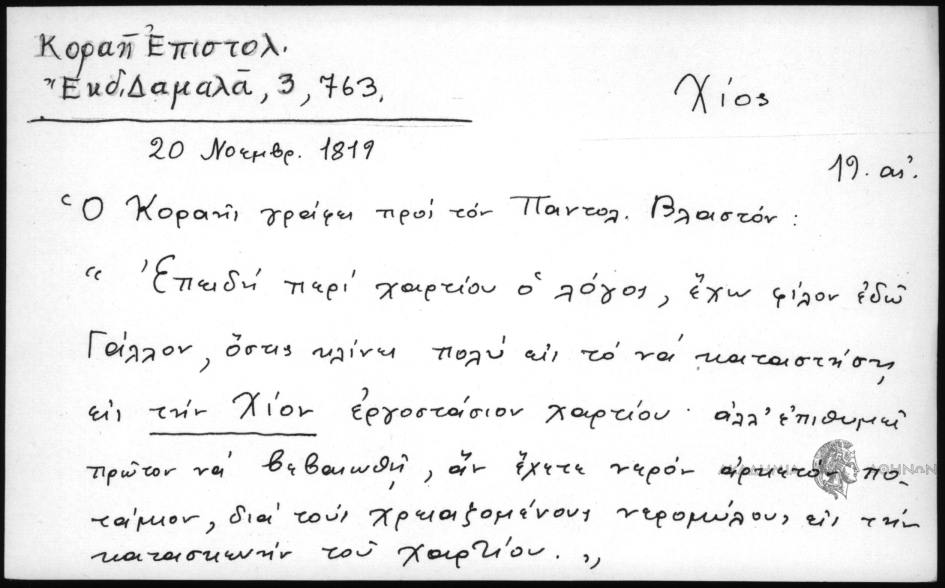 Κοραῆ Ἐπιστολ.
Ἔκδ. Δαμαλᾶ, 3, 763.
Χίος
20 Νοεμβρ. 1819
19. αἰ.
Ὁ Κοραῆς γράφει πρός τόν Παντολ. Βλαστόν:
“ Ἐπειδή περί χαρτίου ὁ λόγος, ἔχω φίλον ἐδῶ
Γάλλον, ὅστις κλίνει πολύ εἰς τό νά καταστήσῃ
εἰς τήν Χίον ἐργοστάσιον χαρτίου· ἀλλ’ ἐπιθυμεῖ
πρῶτον νά βεβαιωθῇ, ἄν ἔχετε νερόν ἀρκετόν πο-
τάμιον, διά τούς χρειαζομένους νερομύλους εἰς τήν
κατασκευήν τοῦ χαρτίου. „
ΑΘΗΝΩΝ